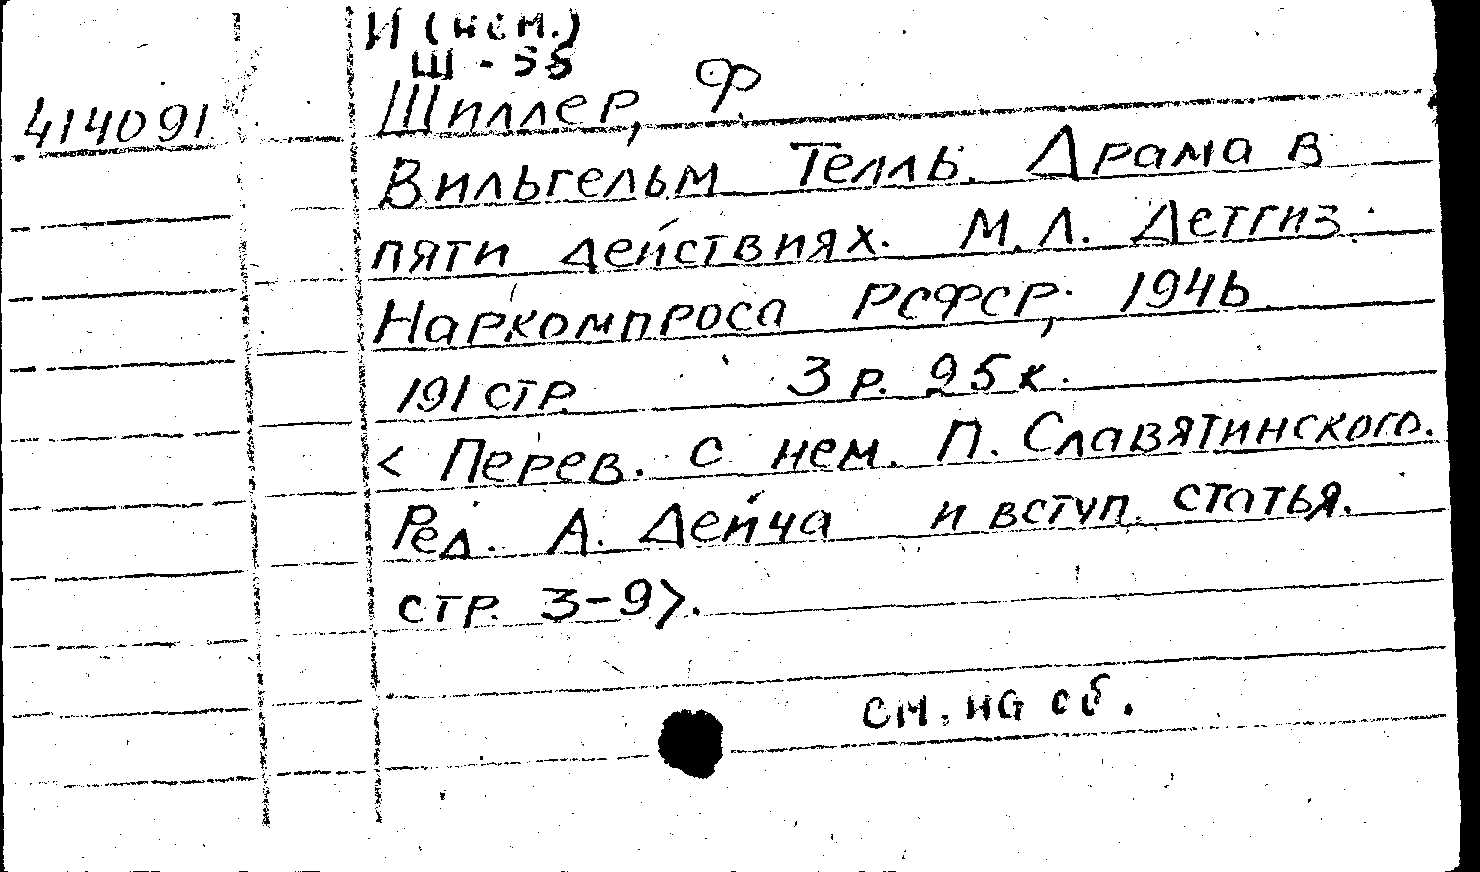 И (нем.)
Ш - 55
414091 Шиллер, Ф.
Вильгельм Телль. Драма в
пяти действиях. М. Л. Детгиз
Наркомпроса РСФСР, 1946
191 стр. 3 р. 25 к.
< Перев. с нем. П. Славятинского.
Ред. А. Дейча и вступ. статья.
стр. 3-9>.
см. на об.